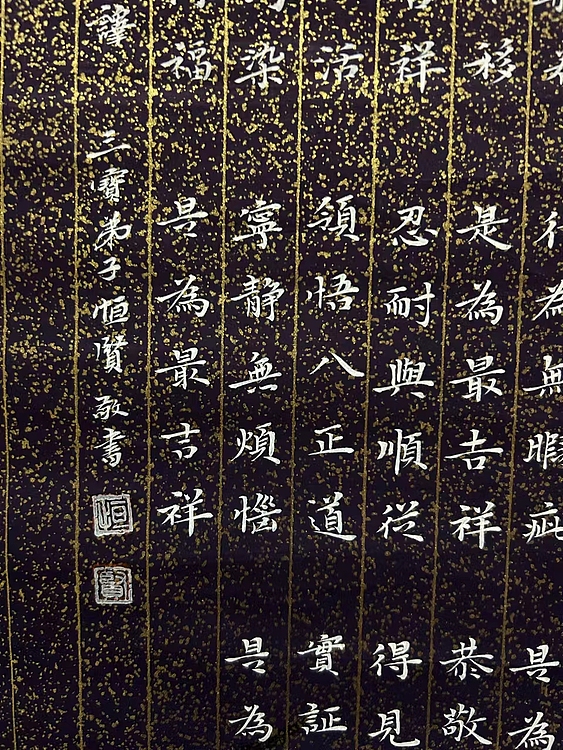 行為無暇疵 是為
移 是為最吉祥 恭敬
祥 忍耐與順從 得見
活 須悟八正道 實証
染 寧静無煩惱 是為
福 是為最吉祥
三寶弟子恒賢敬書
恒
賢